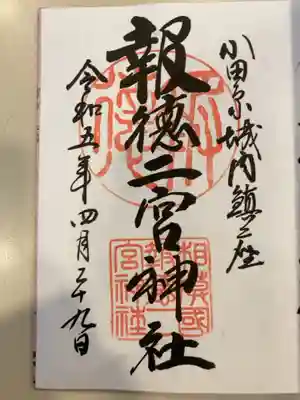 小田原城内鎮座
報徳二宮神社
令和五年四月二十九日
相模國
報徳二
宮神社